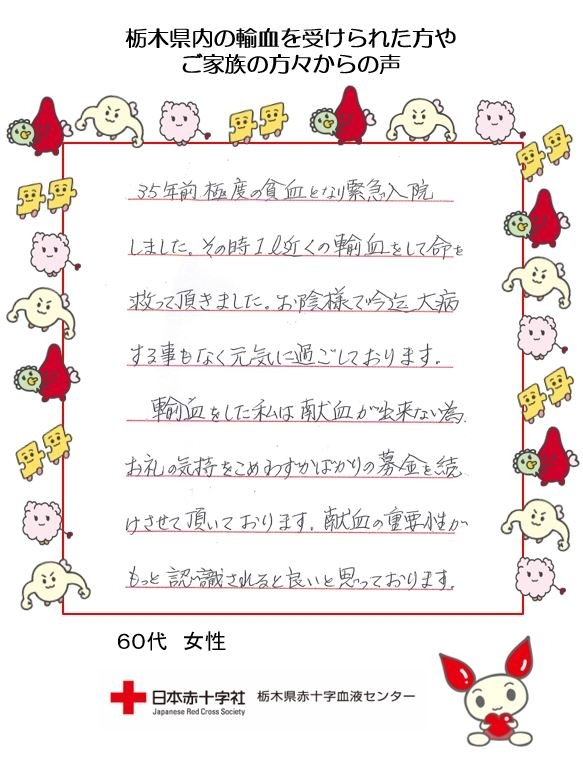 栃木県内の輸血を受けられた方や
ご家族の方々からの声
35年前極度の貧血となり緊急入院
しました。その時1ℓ近くの輸血をして命を
救って頂きました。お陰様で今迄大病
する事もなく元気に過ごしております。
輸血をした私は献血が出来ない為、
お礼の気持をこめわずかばかりの募金を続
けさせて頂いております。献血の重要性が
もっと認識されると良いと思っております。
60代 女性
日本赤十字社 栃木県赤十字血液センター
Japanese Red Cross Society